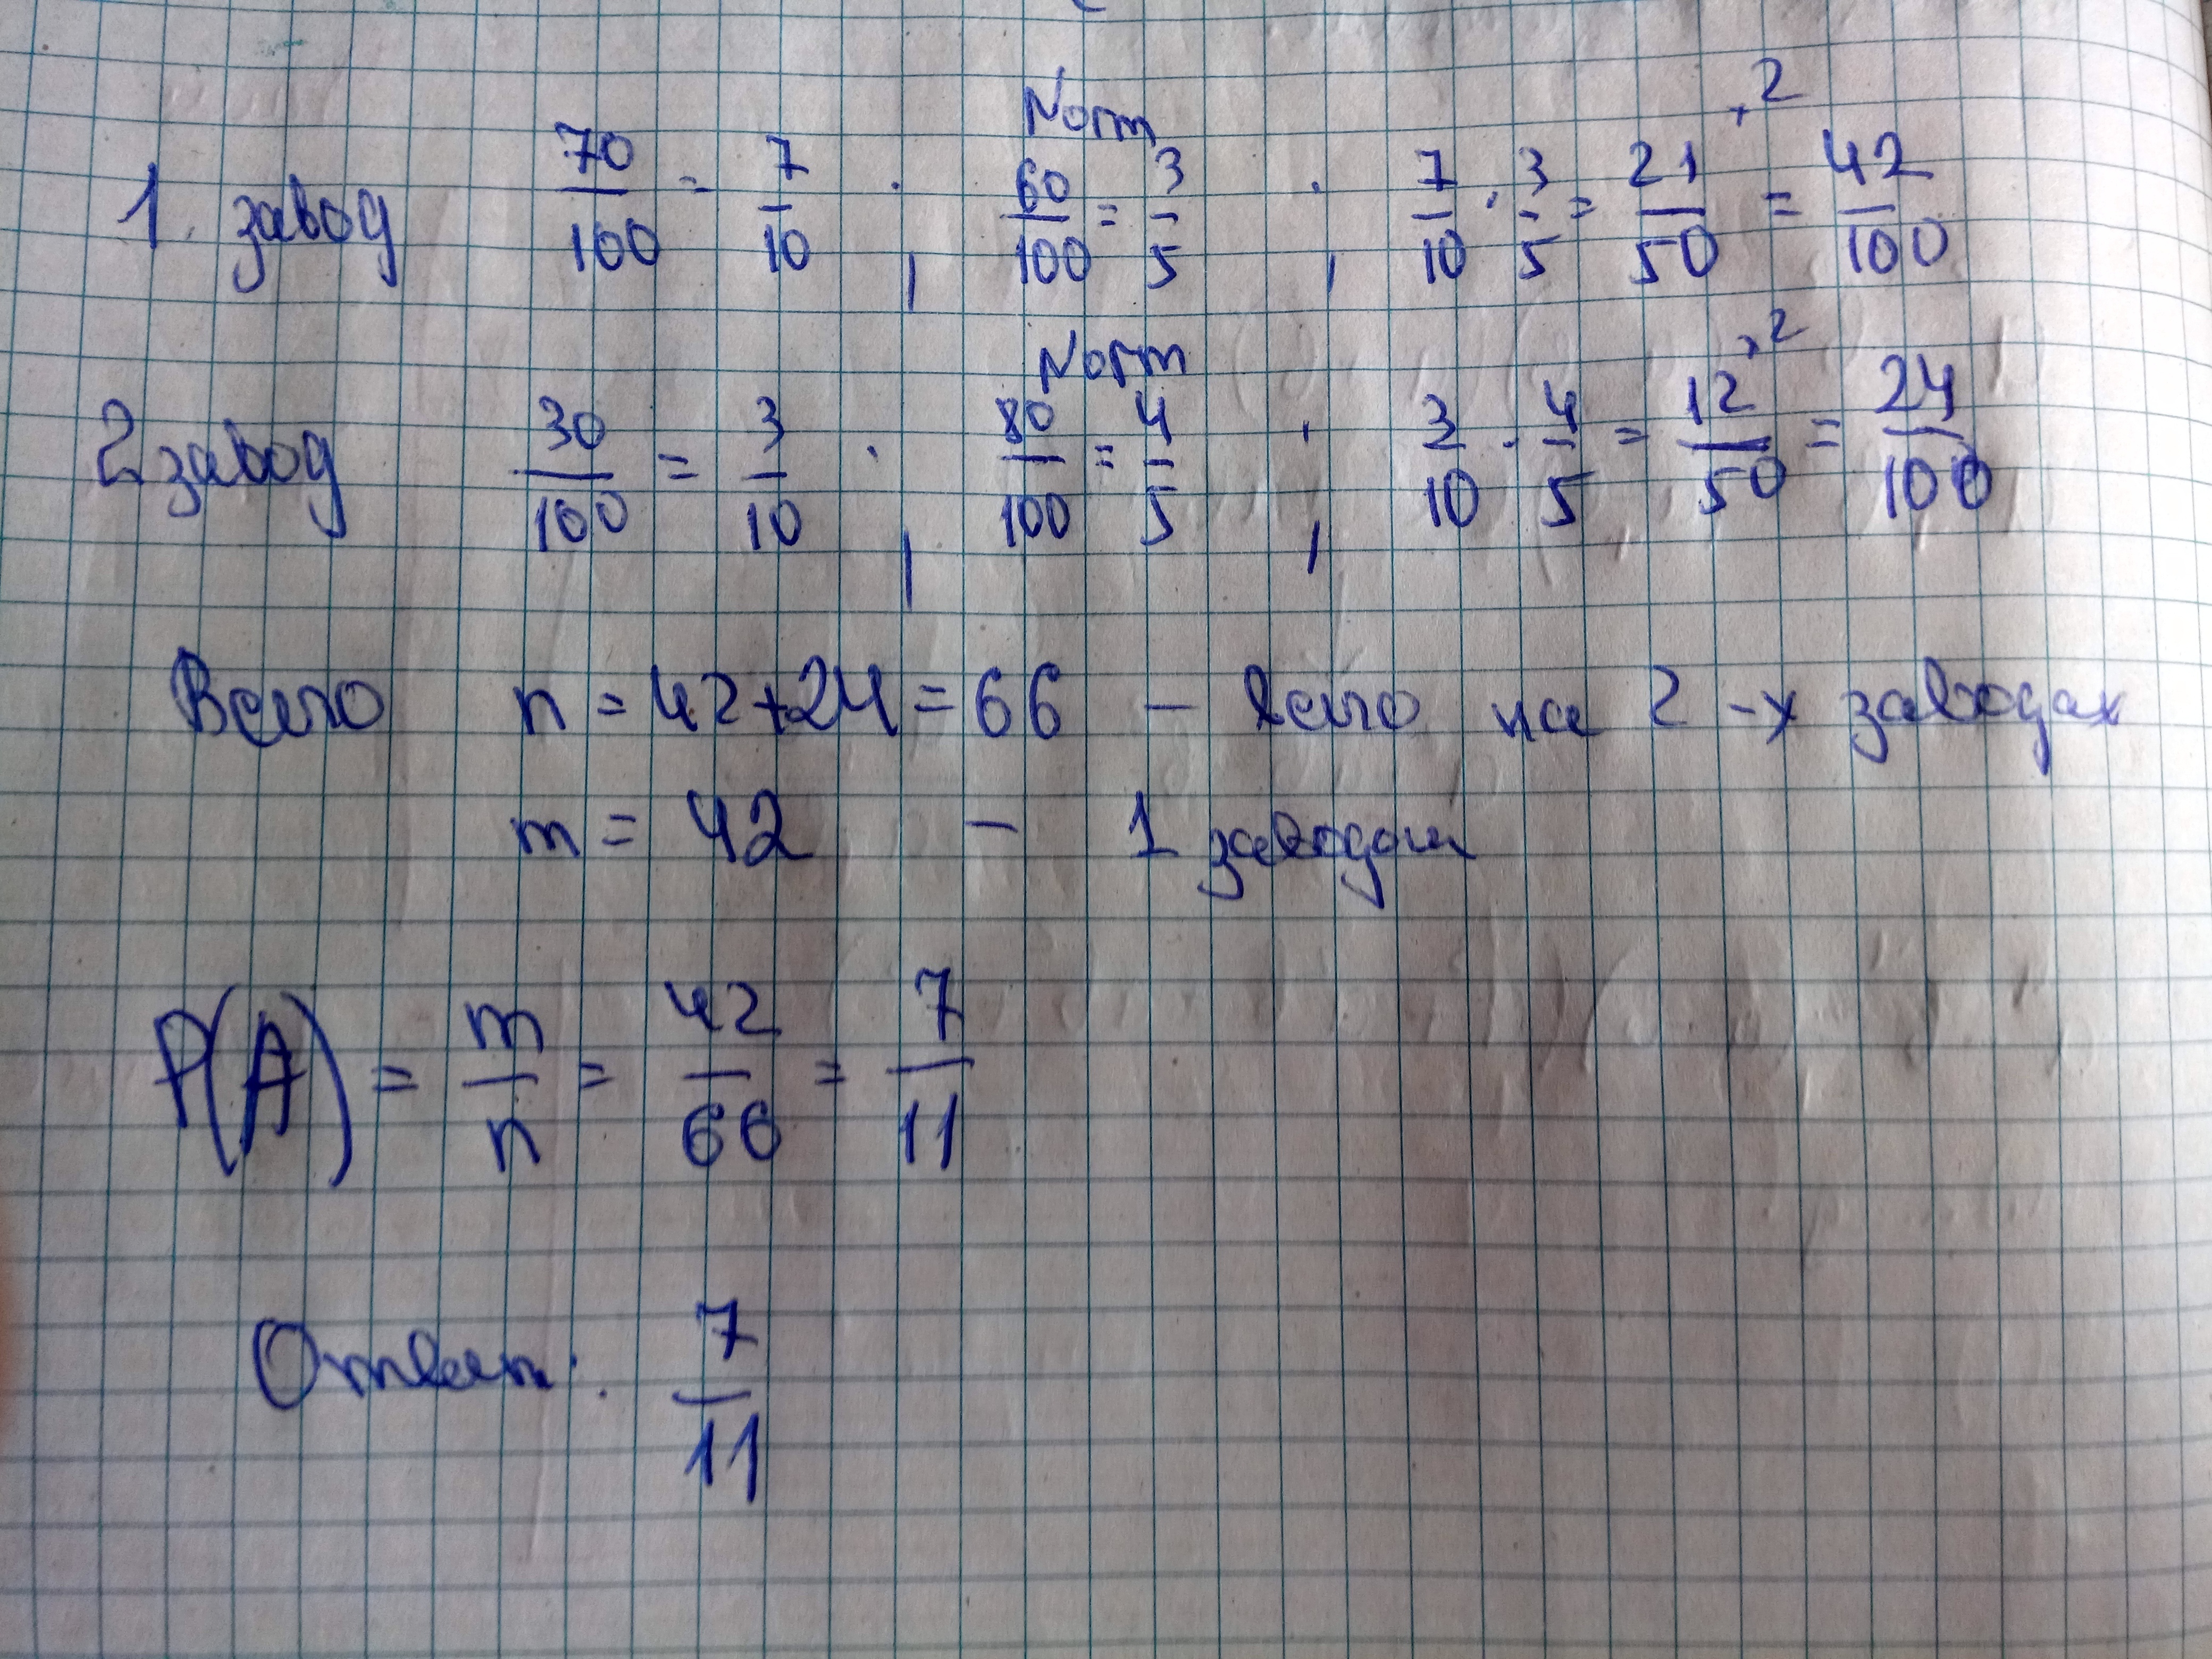 Norm
1. завод 70/100 = 7/10 ; 60/100 = 3/5 ; 7/10 · 3/5 = 21/50 ·2 = 42/100
Norm
2 завод 30/100 = 3/10 ; 80/100 = 4/5 ; 3/10 · 4/5 = 12/50 ·2 = 24/100
Всего n = 42+24 = 66 – всего на 2-х заводах
m = 42 – 1 заводом
P(A) = m/n = 42/66 = 7/11
Ответ: 7/11